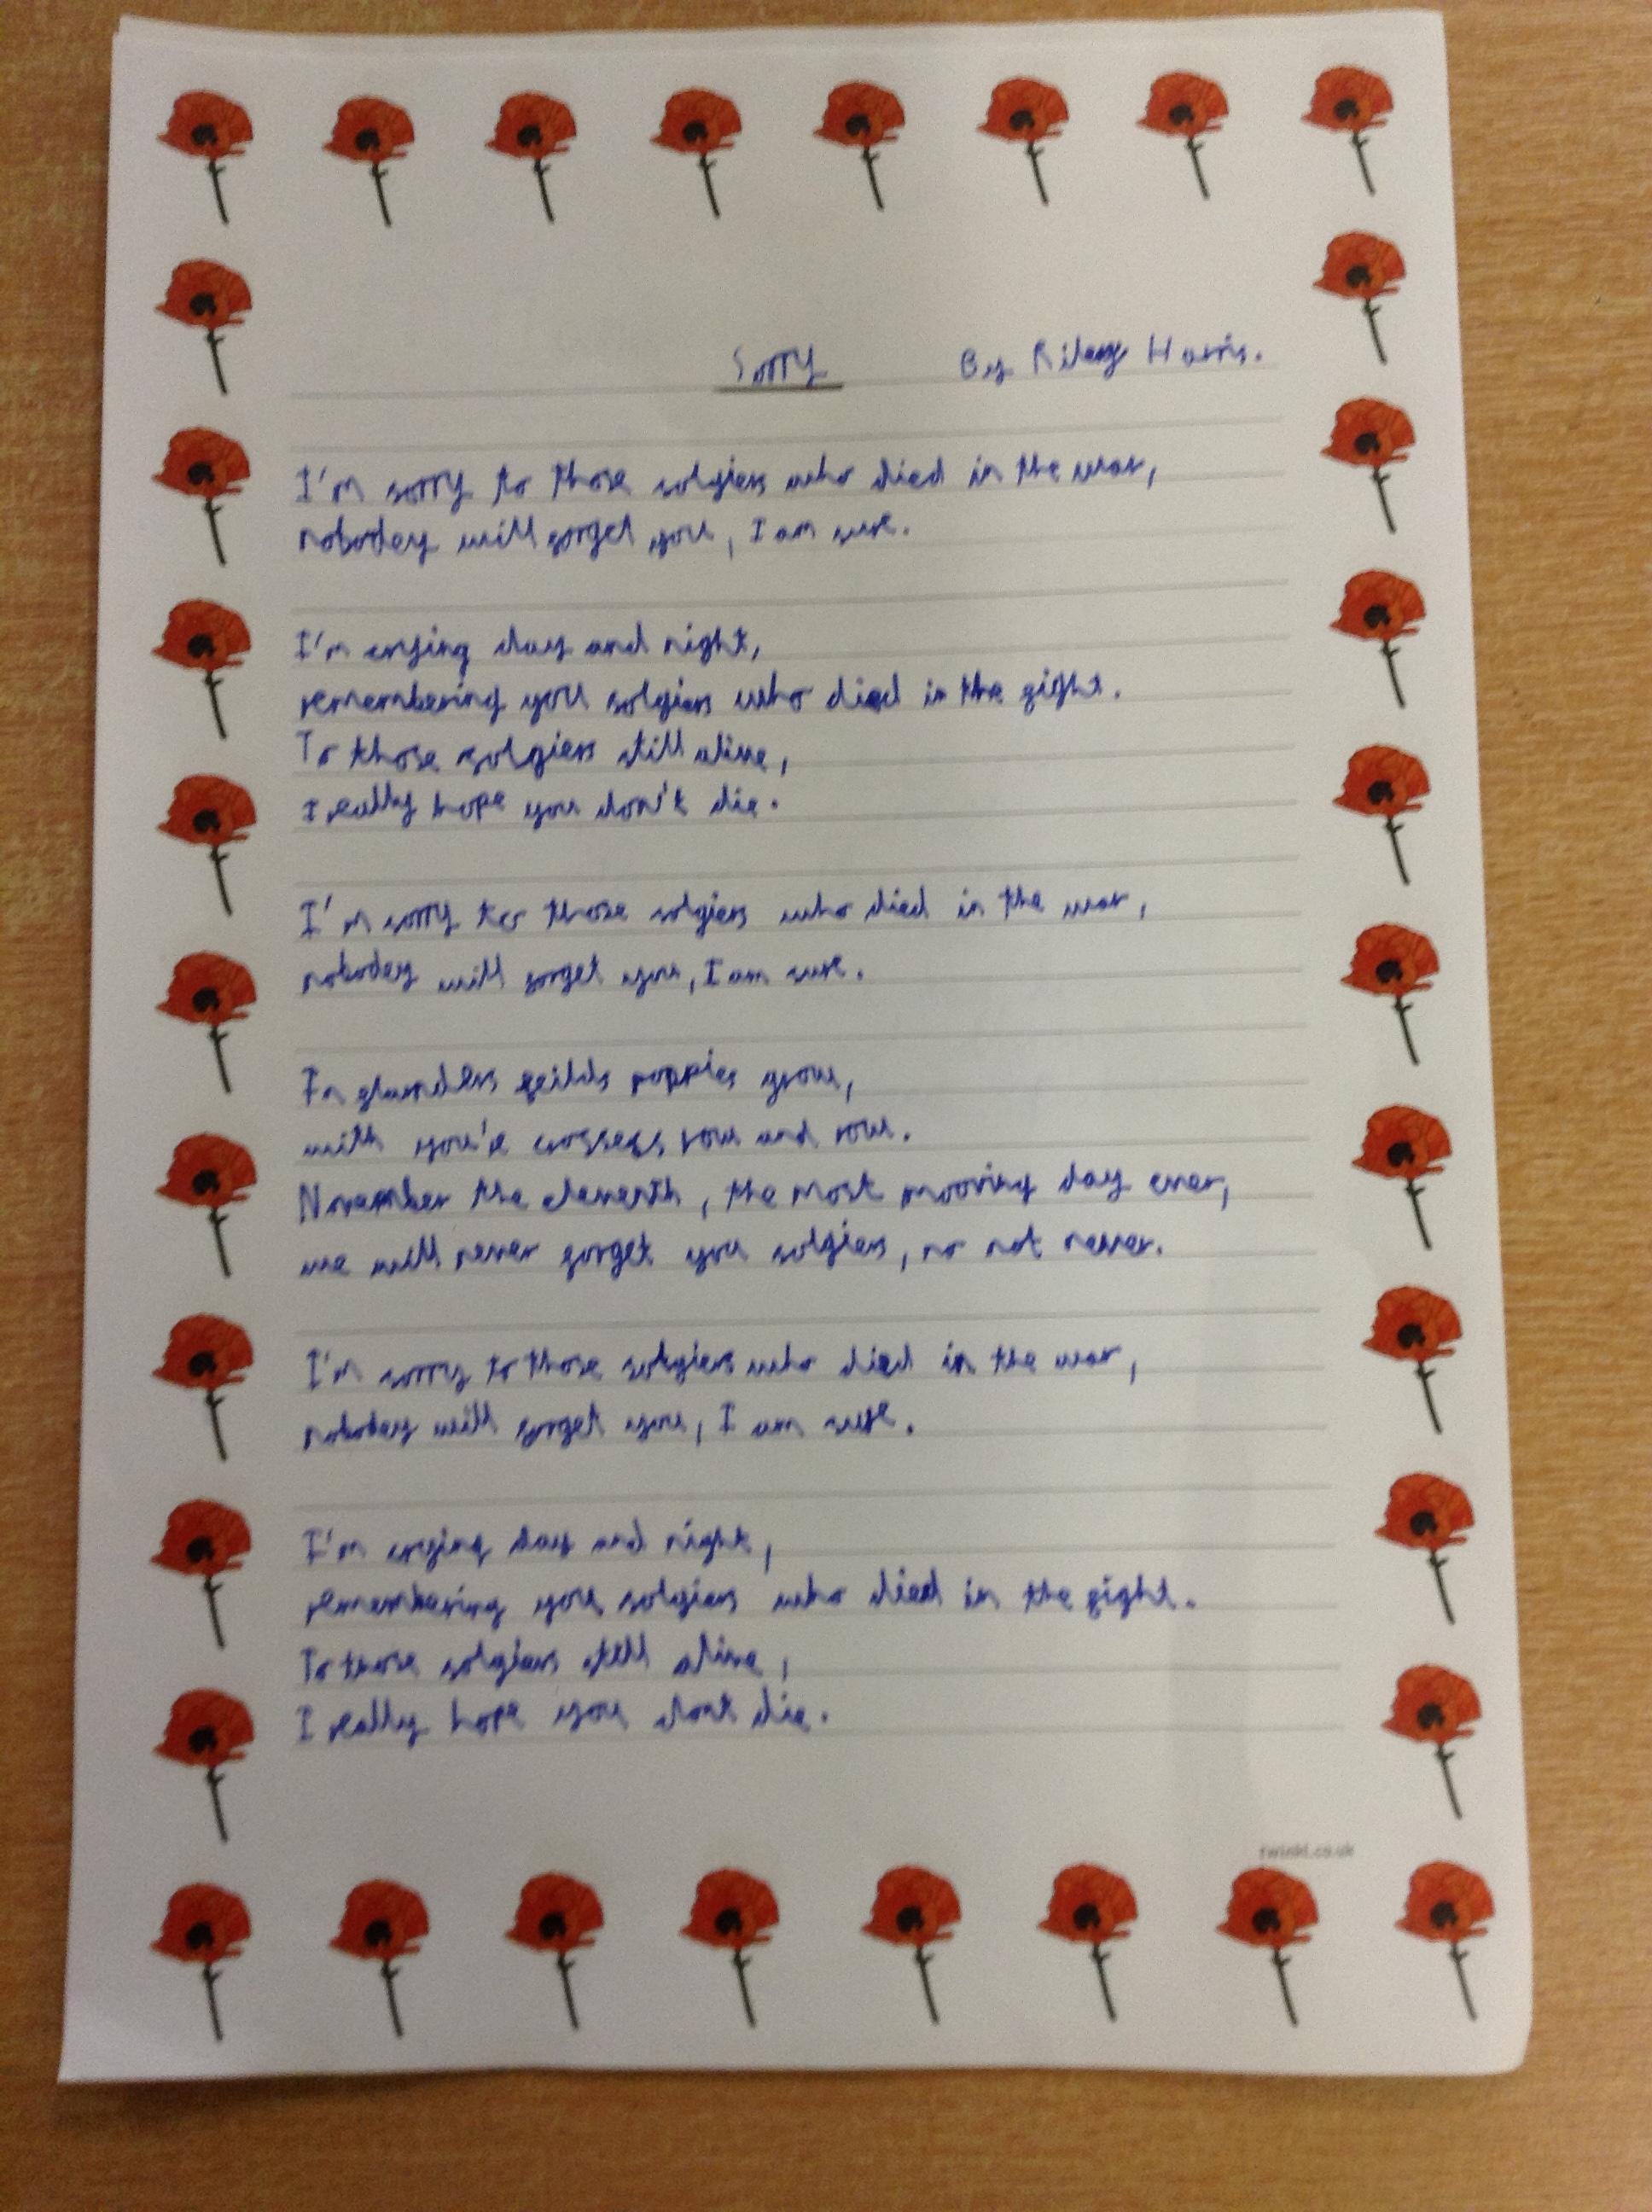 Sorry By Riley Harris.
I'm sorry to those solgiers who died in the war,
nobodey will forget you, I am sure.
I'm crying day and night,
remembering you solgiers who died in the fight.
To those solgiers still alive,
I really hope you don't die.
I'm sorry to those solgiers who died in the war,
nobodey will forget you, I am sure.
In flanders feilds poppies grow,
with you're crossess row and row.
November the eleventh, the most mooving day ever,
we will never forget you solgiers, no not never.
I'm sorry to those solgiers who died in the war,
nobodey will forget you, I am sure.
I'm crying day and night,
remembering you solgiers who died in the fight.
To those solgiers still alive,
I really hope you dont die.
twinkl.co.uk